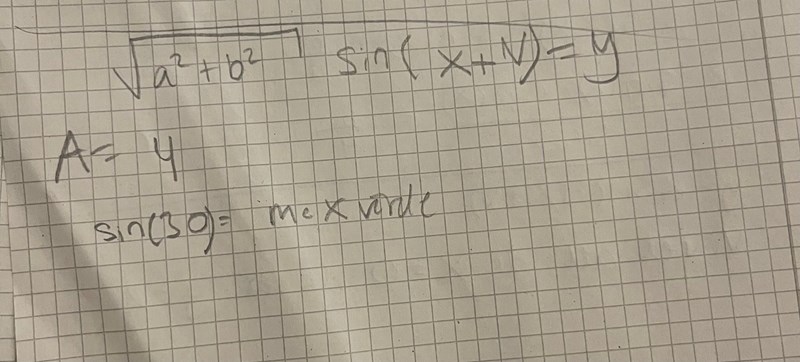 √a² + b² sin( x+v)= y
A= 4
sin(30)= max värde